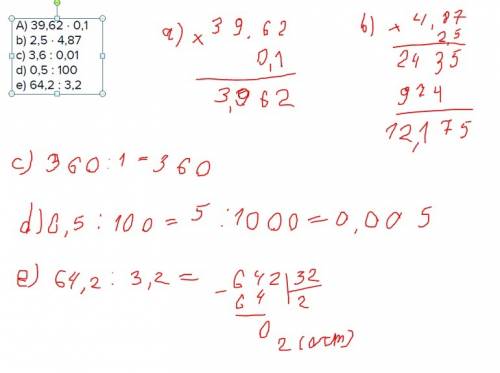 A) 39,62 · 0,1
b) 2,5 · 4,87
c) 3,6 : 0,01
d) 0,5 : 100
e) 64,2 : 3,2
a) × 39.62
0,1
3,962
b) × 4,87
2,5
2435
924
12,175
c) 360:1=360
d) 0,5 : 100 = 5 : 1000 = 0,005
e) 64,2 : 3,2 = - 642 | 32
64 2
0
2 (ост)